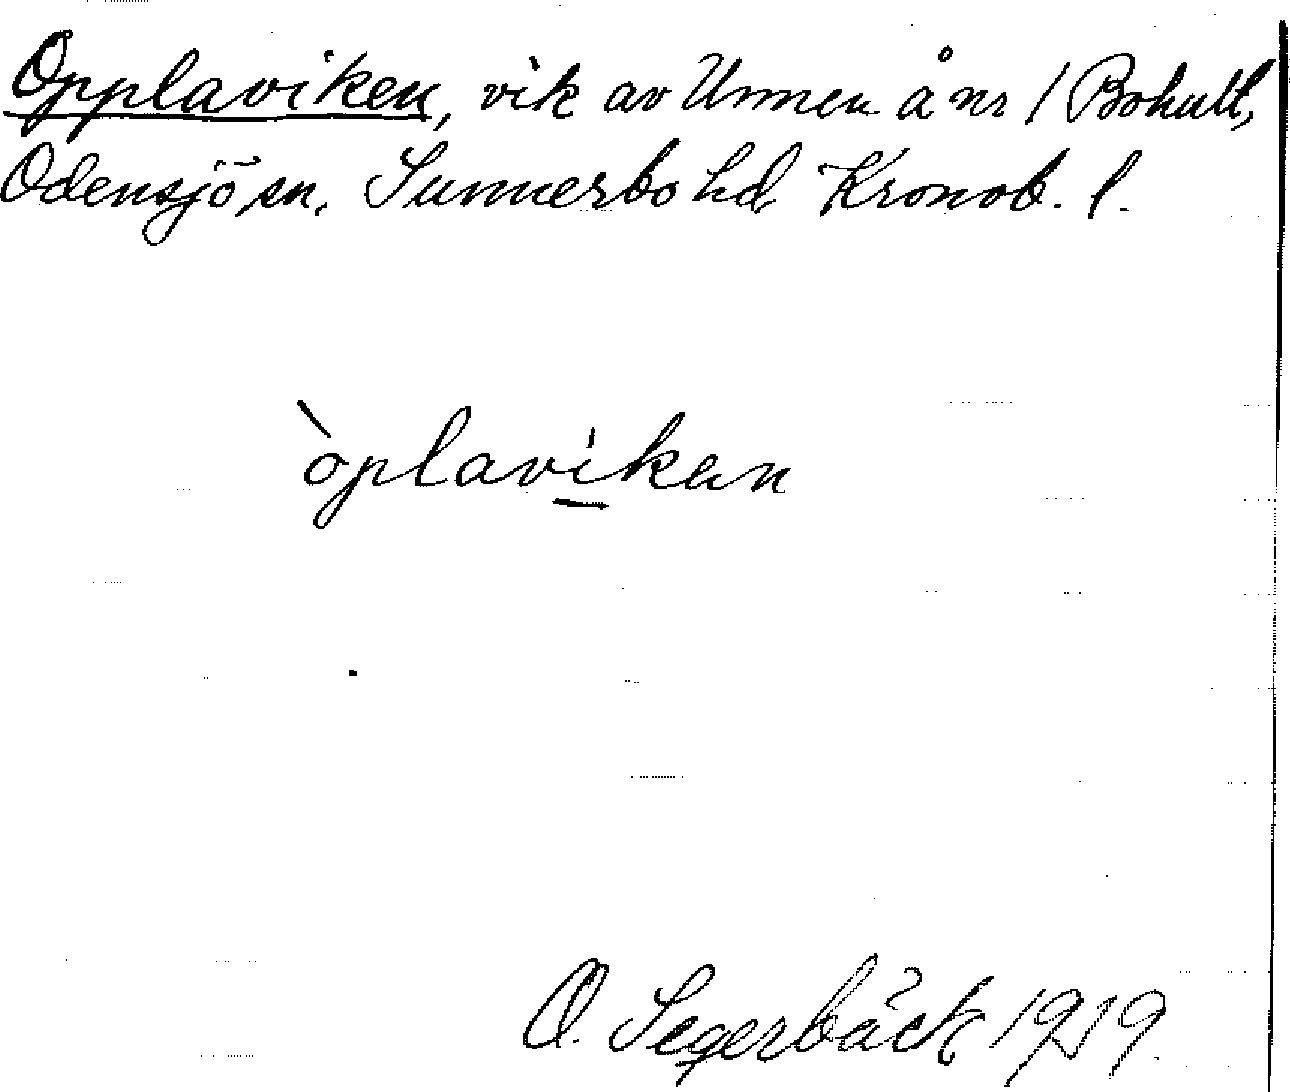 Opplaviken, vik av Unnen å nr 1 Bohult,
Odensjö sn. Sunnerbo hd Kronob. l.
òplavikan
O. Segerbäck 1919.